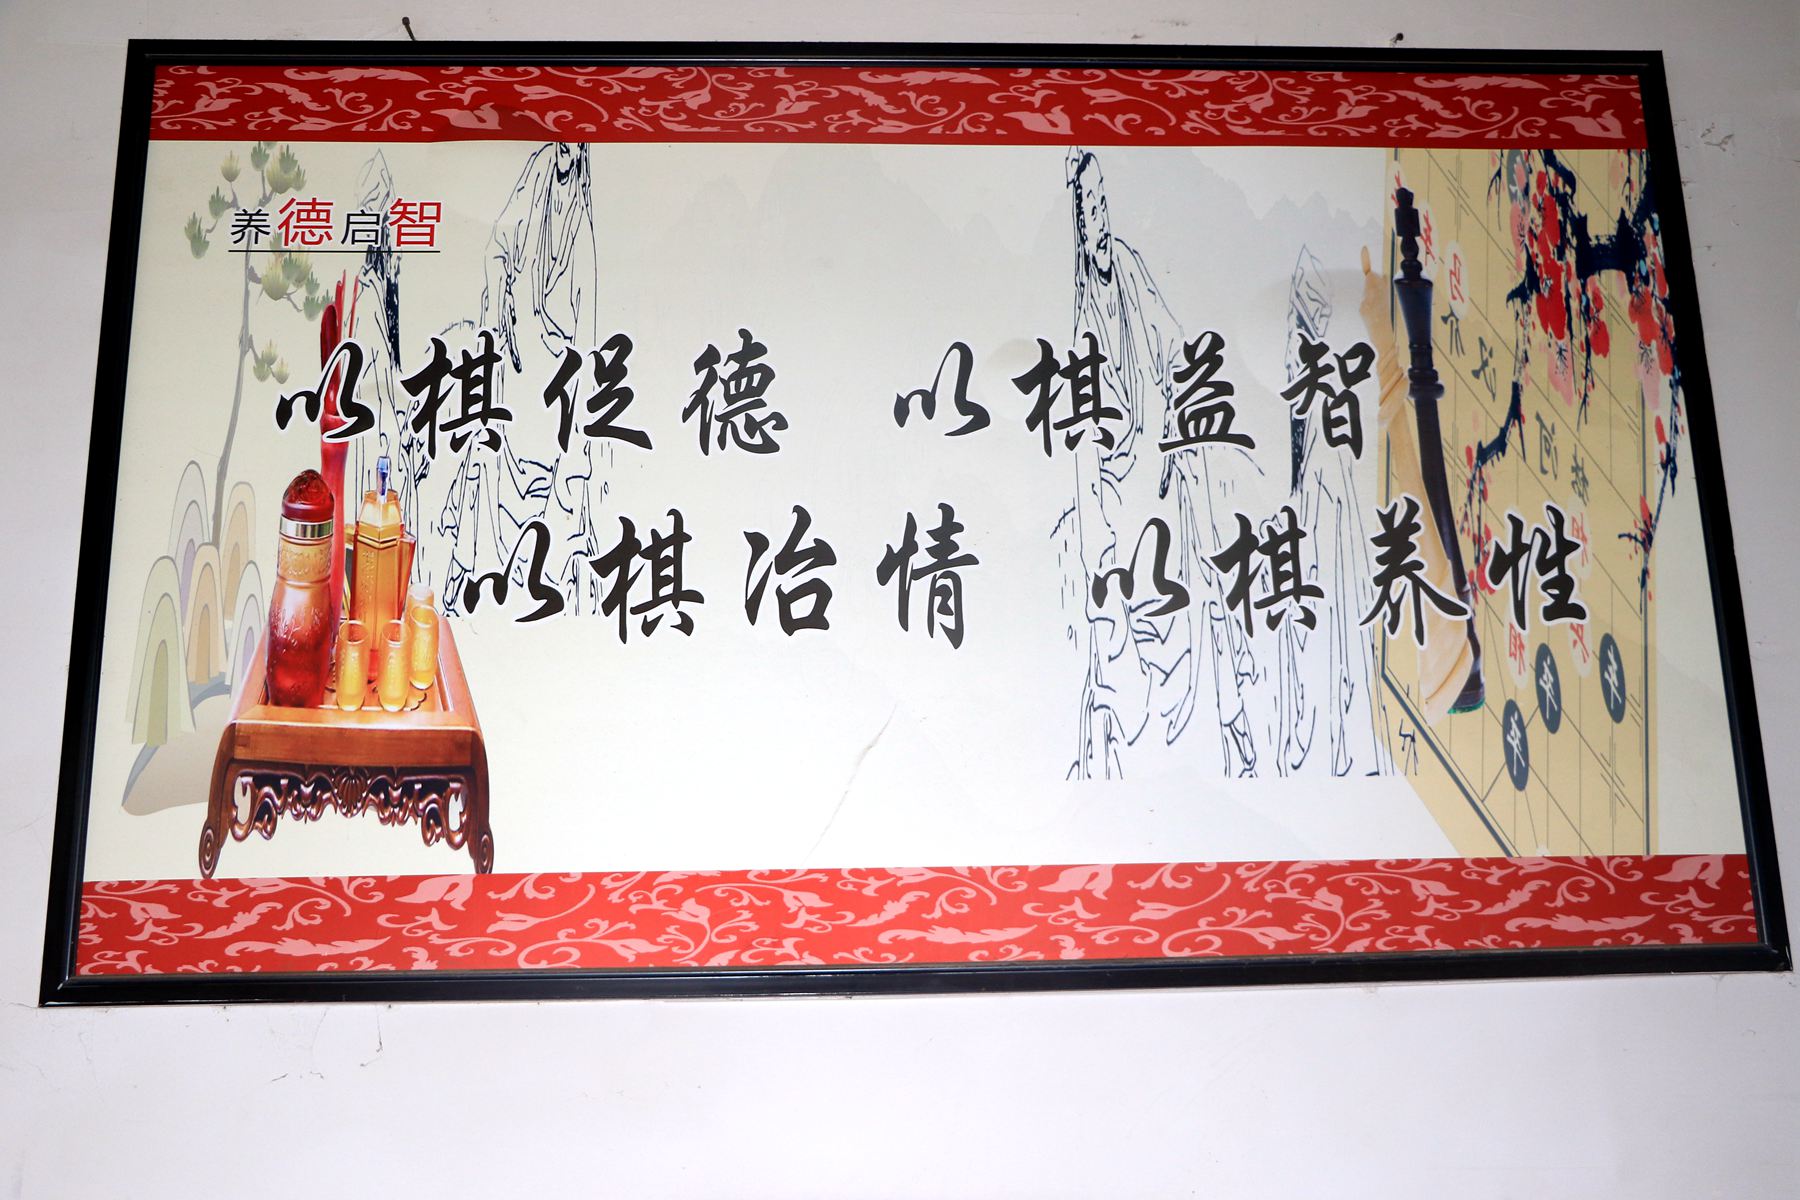 养德启智
以棋促德 以棋益智
以棋冶情 以棋养性